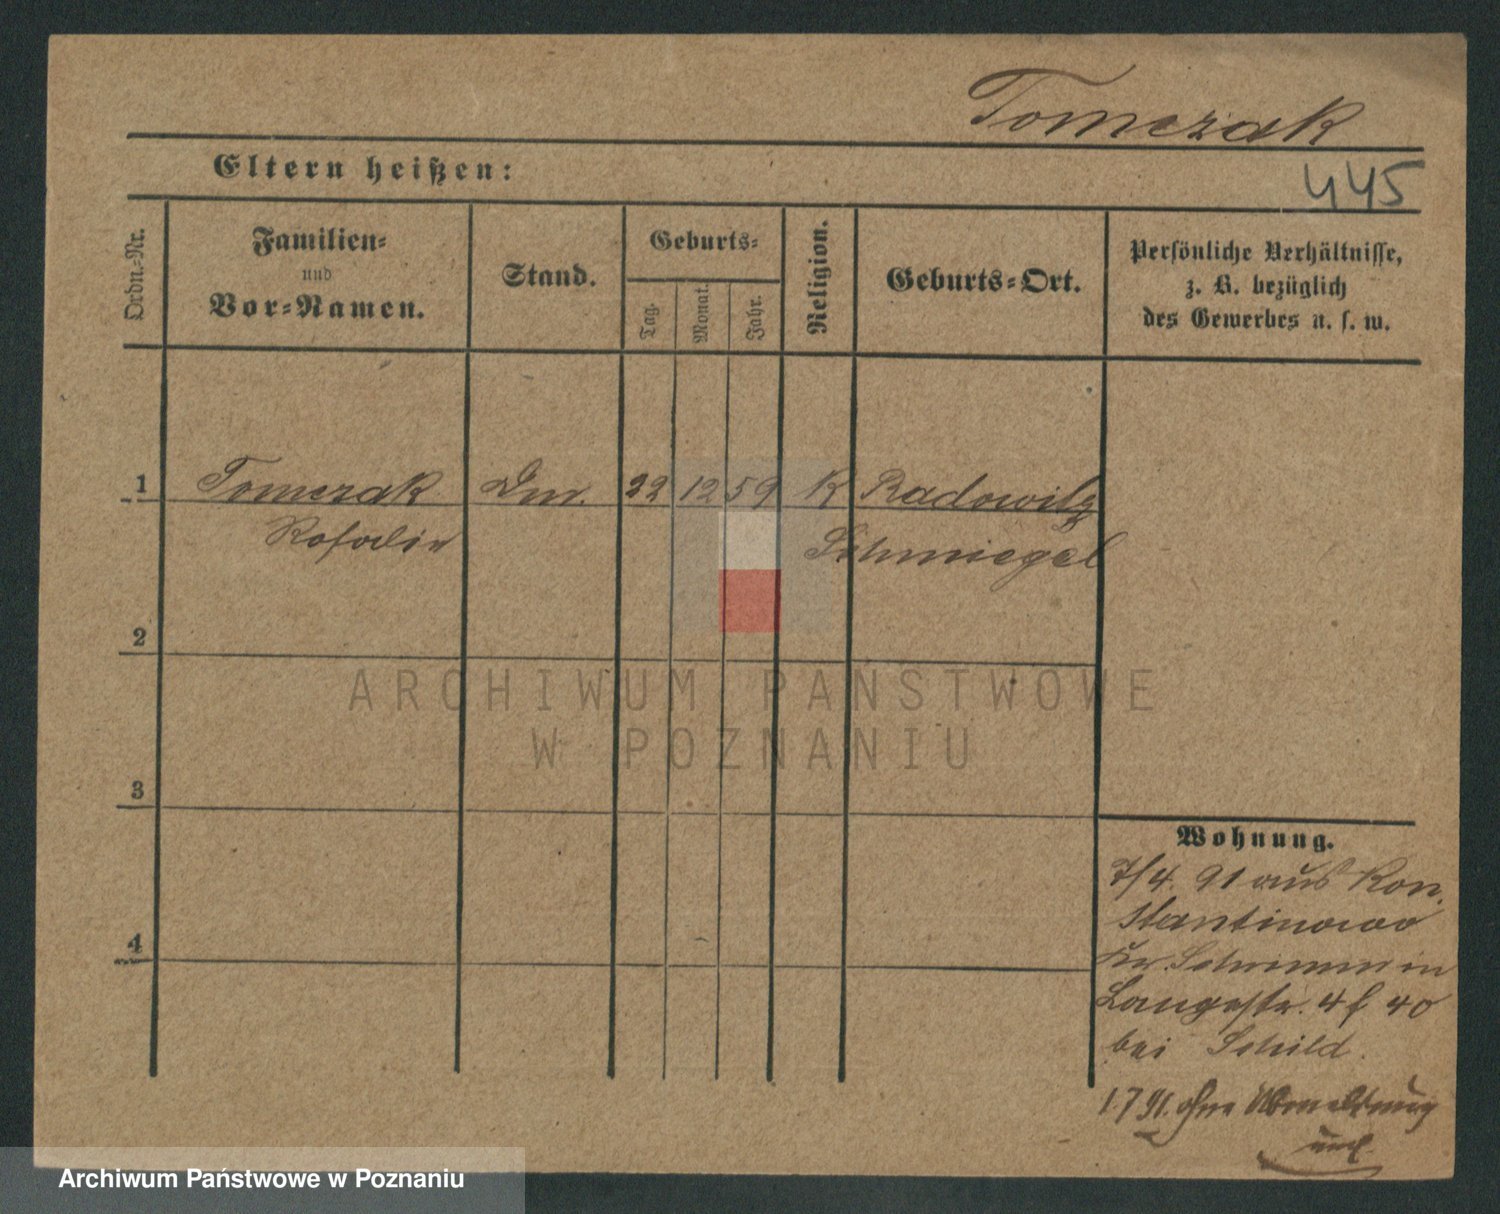 Tomczak
Eltern heißen:
445
Ordn.-Nr.
Familien-
und
Vor-Namen.
Stand.
Geburts-
Tag.
Monat.
Jahr.
Religion.
Geburts-Ort.
Persönliche Verhältnisse,
z. B. bezüglich
des Gewerbes u. s. w.
1 Tomczak 22 12 59 K Radowitz
Rosalie Schmiegel
2
3
4
Wohnung.
7/4. 91 aus Kon-
stantinowo
Kr. Schrimm in
Langestr. 4 40
bei Schild.
1.7 91. ohne Abmeldung
ARCHIWUM PAŃSTWOWE
W POZNANIU
Archiwum Państwowe w Poznaniu